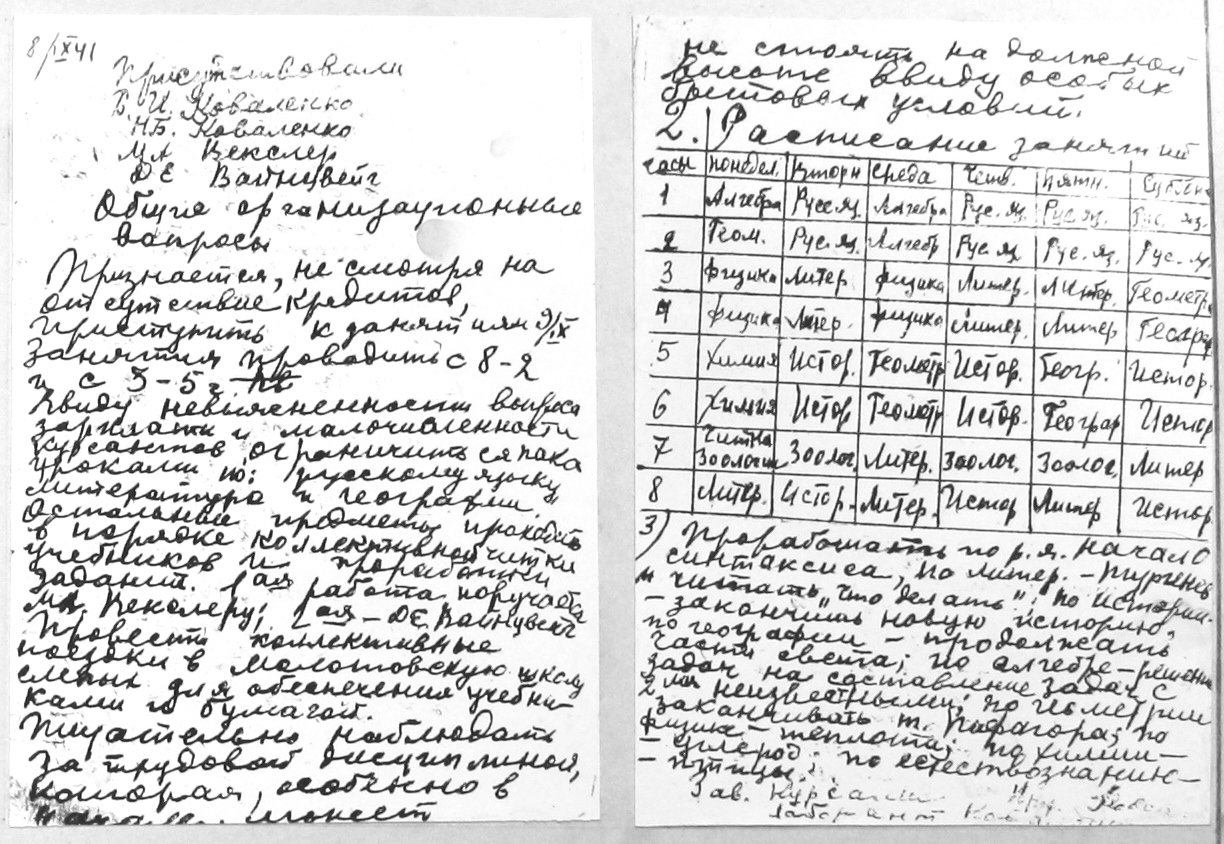 8/IX 41
Присутствовали
Б. И. Коваленко
Н.Б. Коваленко
М.А. Векслер
Д.Е. Вайнцвейг
Общие организационные
вопросы
Признается, не смотря на
отсутствие кредитов,
приступить к занятиям 9/IX
Занятия проводить с 8-2
и с 3-5 ч.
Ввиду невыясненности вопроса
зарплаты и малочисленности
курсантов ограничиться пока
уроками по: русскому языку,
литература и география.
Остальные предметы проходить
в порядке коллективной читки
учебников и проработки
заданий. 1ая работа поручается
М.А. Векслеру; 2ая - Д.Е. Вайнцвейг
Провести коллективные
поездки в Молотовскую школу
слепых для обеспечения учебни-
ками и бумагой.
Тщательно наблюдать
за трудовой дисциплиной,
которая, особенно в
может
не стоять на должной
высоте ввиду особых
бытовых условий.
2. Расписание занятий
часы понедел. Вторн Среда Четв. Пятн. Суббота
1 Алгебра Русс яз. Алгебра Рус. яз. Рус. яз. Рус. яз.
2 Геом. Рус. яз. Алгебр Рус. яз. Рус. яз. Рус. яз.
3 физика литер. физика Литер. Литер. Геометр
4 физика Литер. физика Литер. Литер Географ
5 Химия Истор. Геометр Истор. Геогр. Истор.
6 Химия Истор Геометр Истор. Географ Истор
7 Читка Зоологии Зоолог. Литер. Зоолог. Зоолог. Литер
8 Литер. Истор. Литер. Истор Литер Истор.
3) Проработать по р.я. начало
синтаксиса, по литер. - Тургенев
и читать "Что делать"; по истории
- закончить новую историю,
по географии - продолжать
части света; по алгебре - решение
задач на составление задач с
2мя неизвестными; по геометрии
заканчивать т. Пифагора; по
физике - теплота; по химии -
- углерод; по естествознанию -
- птицы.
Зав. Курсами
Лаборант